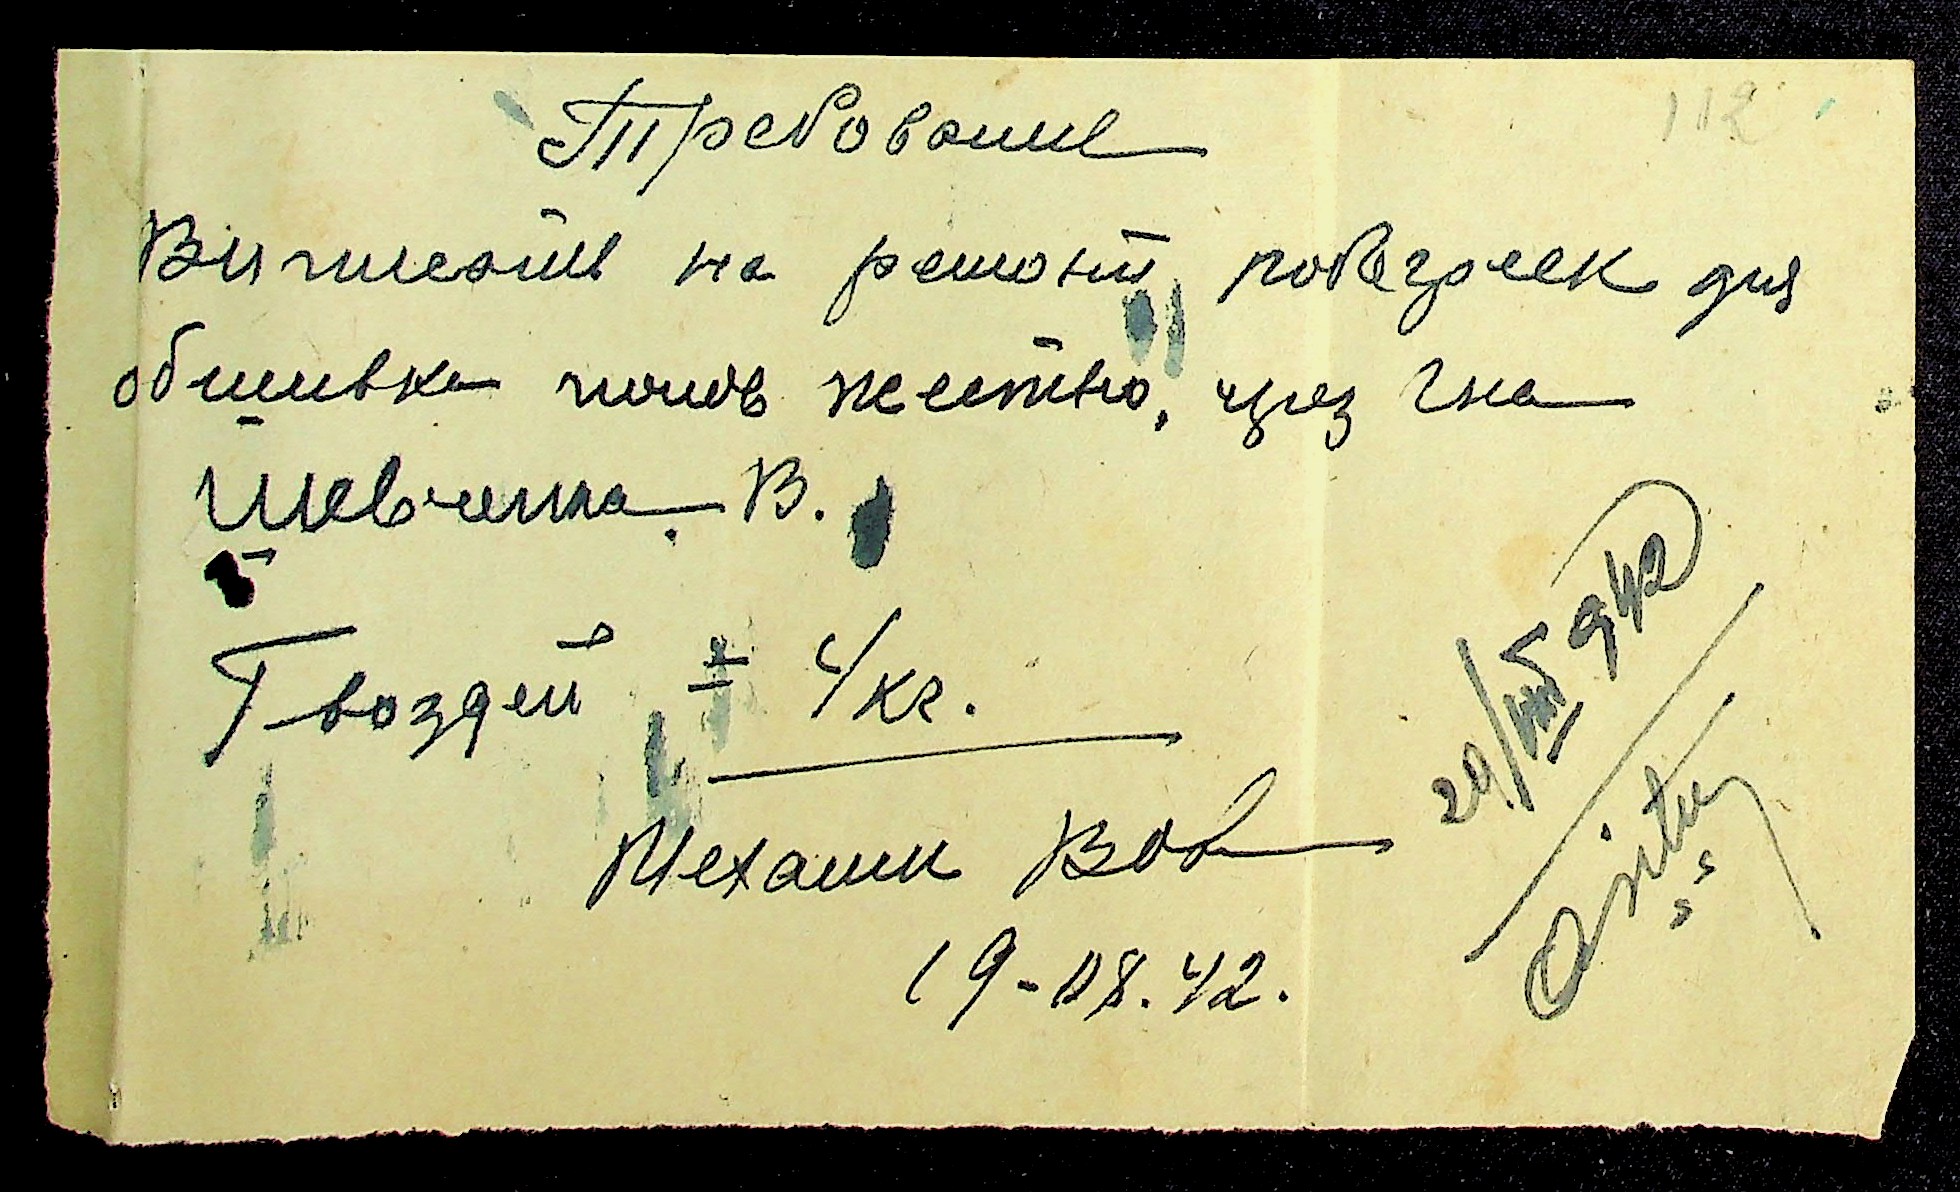 Требование
112
Выписать на ремонт повозок для
обшивка полов жестью, через г-на
Шевченка В.
Гвоздей = 4 кг.
Механик Вов
19-08.42.
20/VIII 942